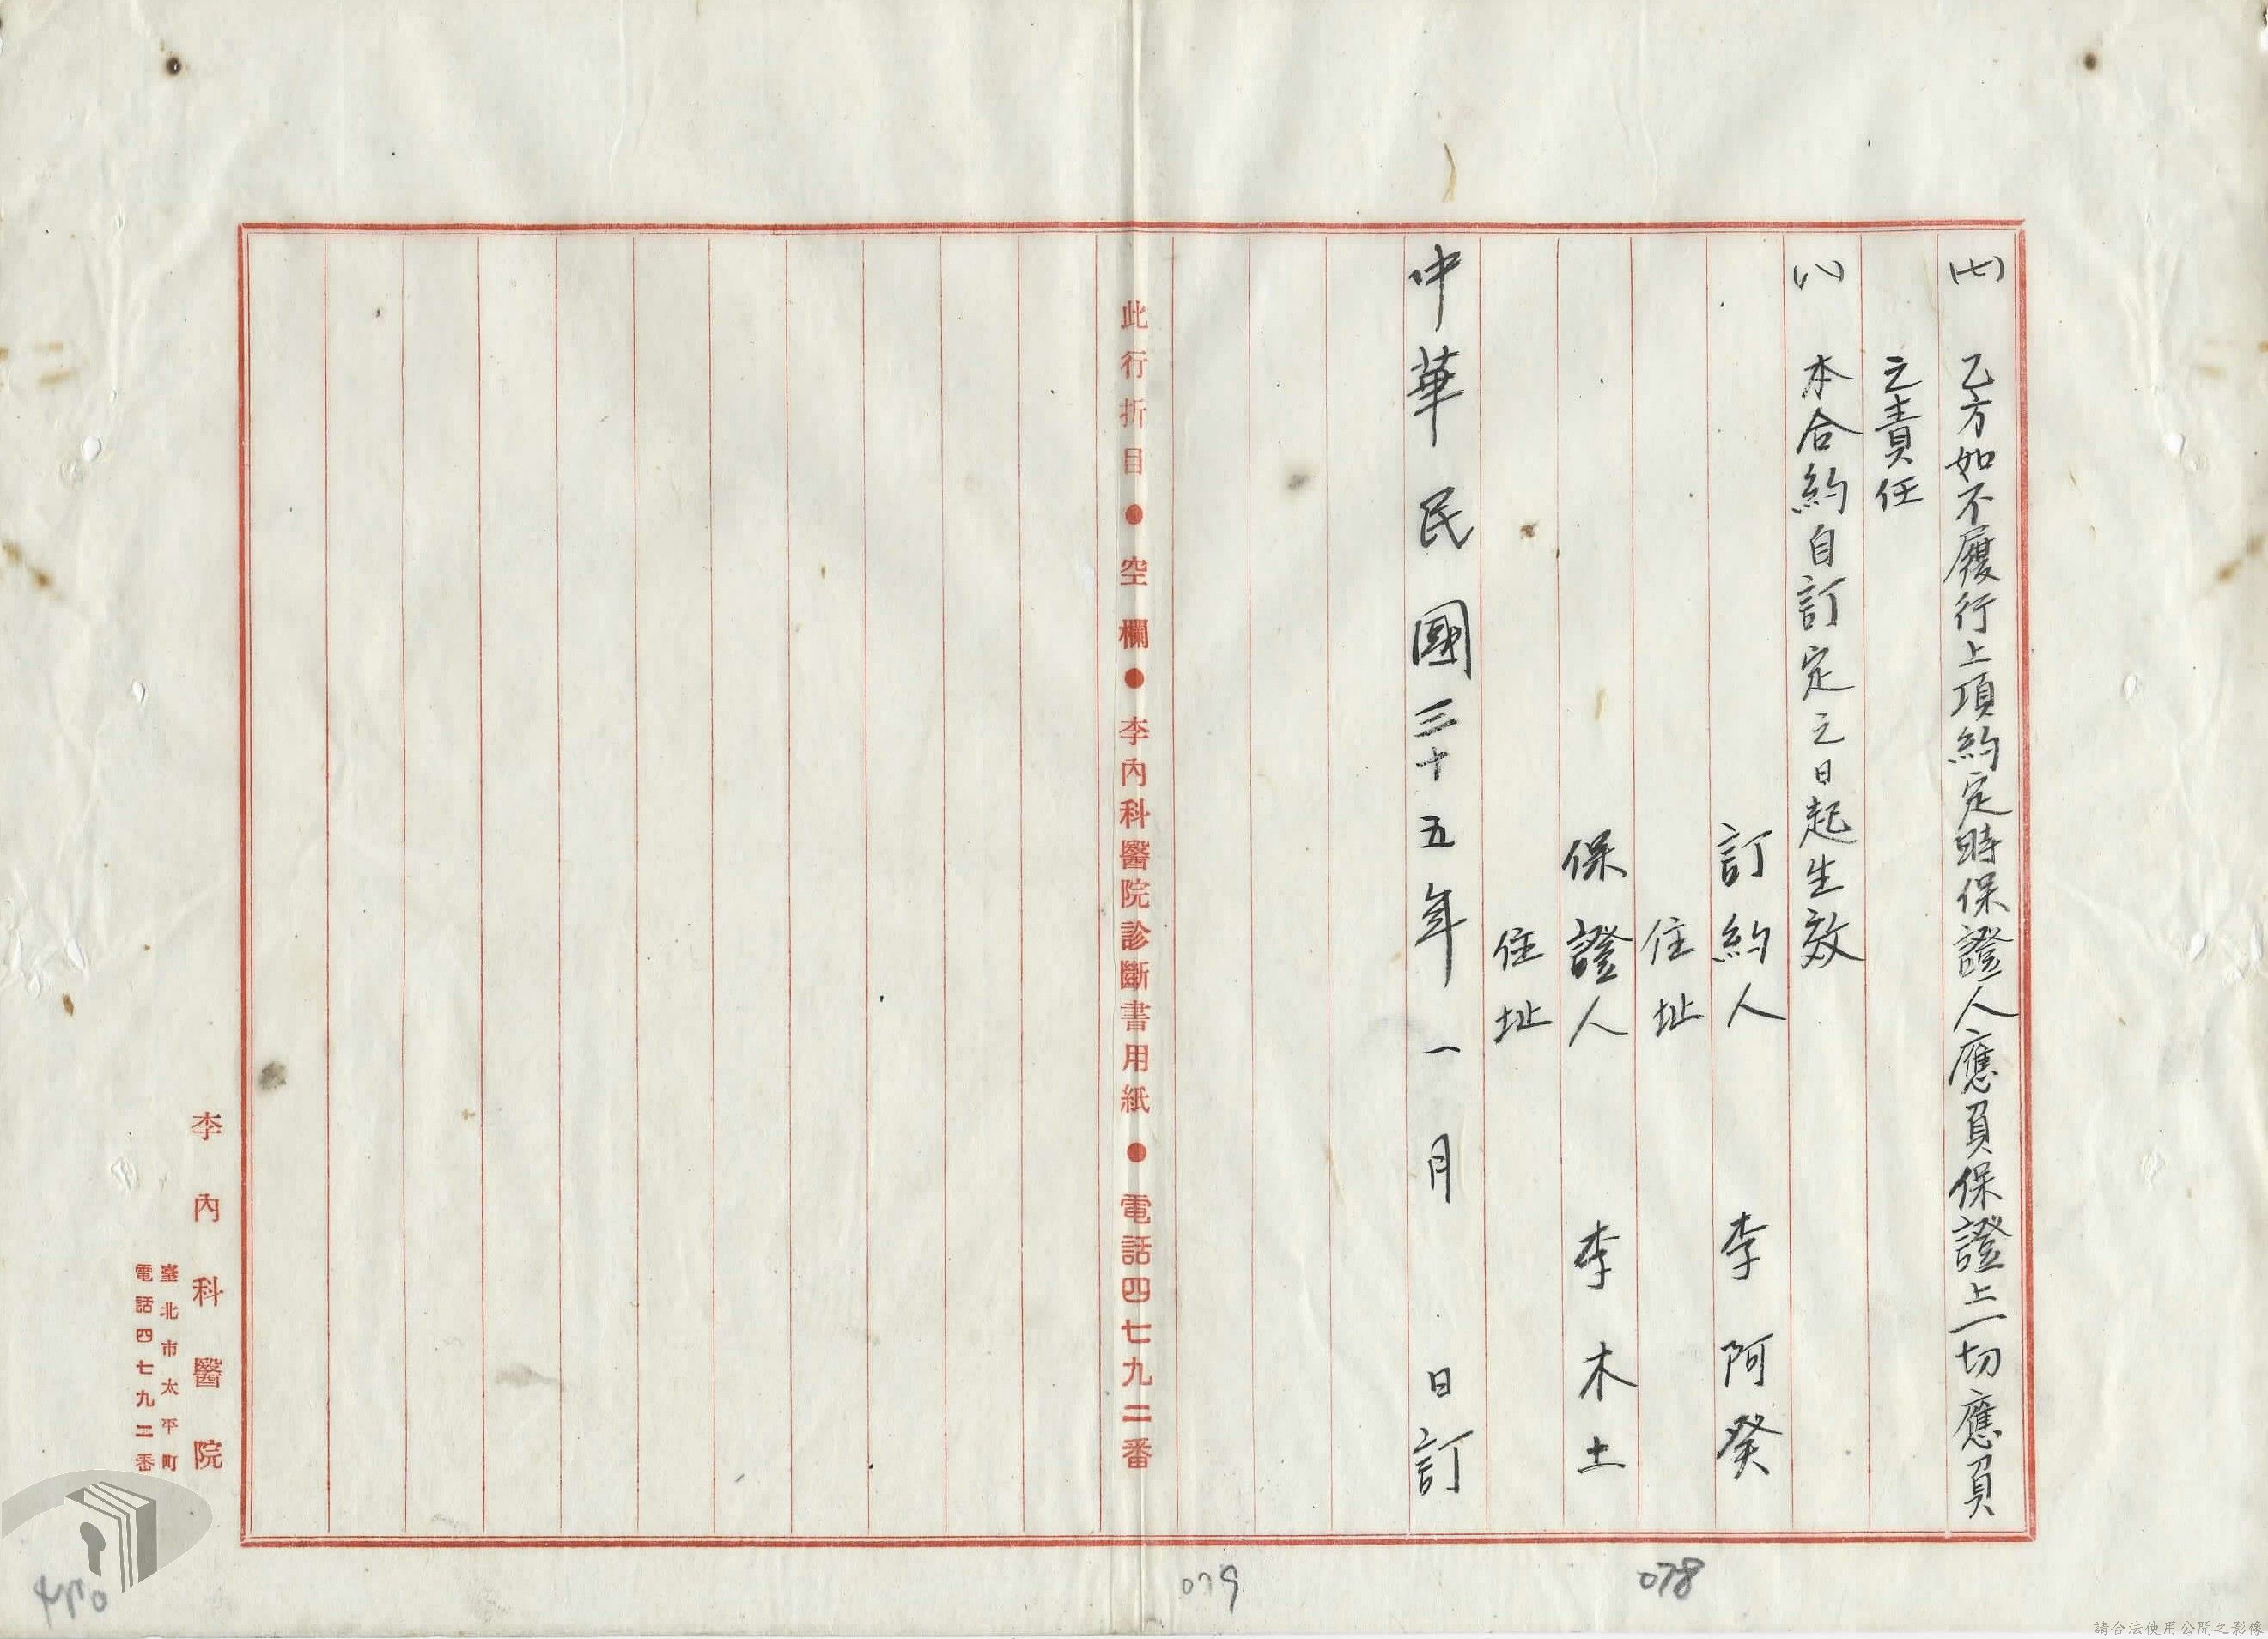 (七) 乙方如不履行上項約定時保證人應負保證上一切應負
之責任
(八) 本合約自訂定之日起生效
訂約人 李阿癸
住址
保證人 李木土
住址
中華民國三十五年一月 日訂
此行折目●空欄●李內科醫院診斷書用紙●電話四七九二番
李內科醫院
臺北市太平町
電話四七九二番
078
079
請合法使用公開之影像